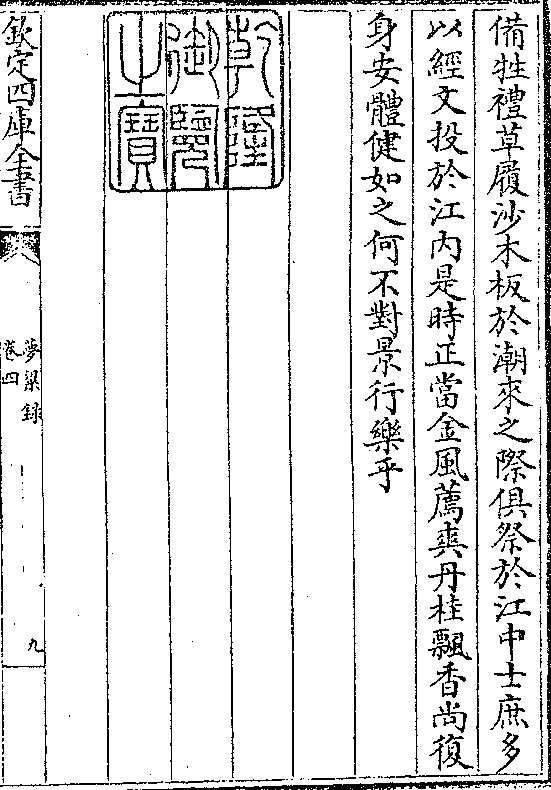 備牲禮草履沙木板於潮來之際俱祭於江中士庶多
以經文投於江内是時正當金風薦爽丹桂飄香尚復
身安體健如之何不對景行樂乎
乾隆御覽之寶
欽定四庫全書
夢粱録
卷四
九